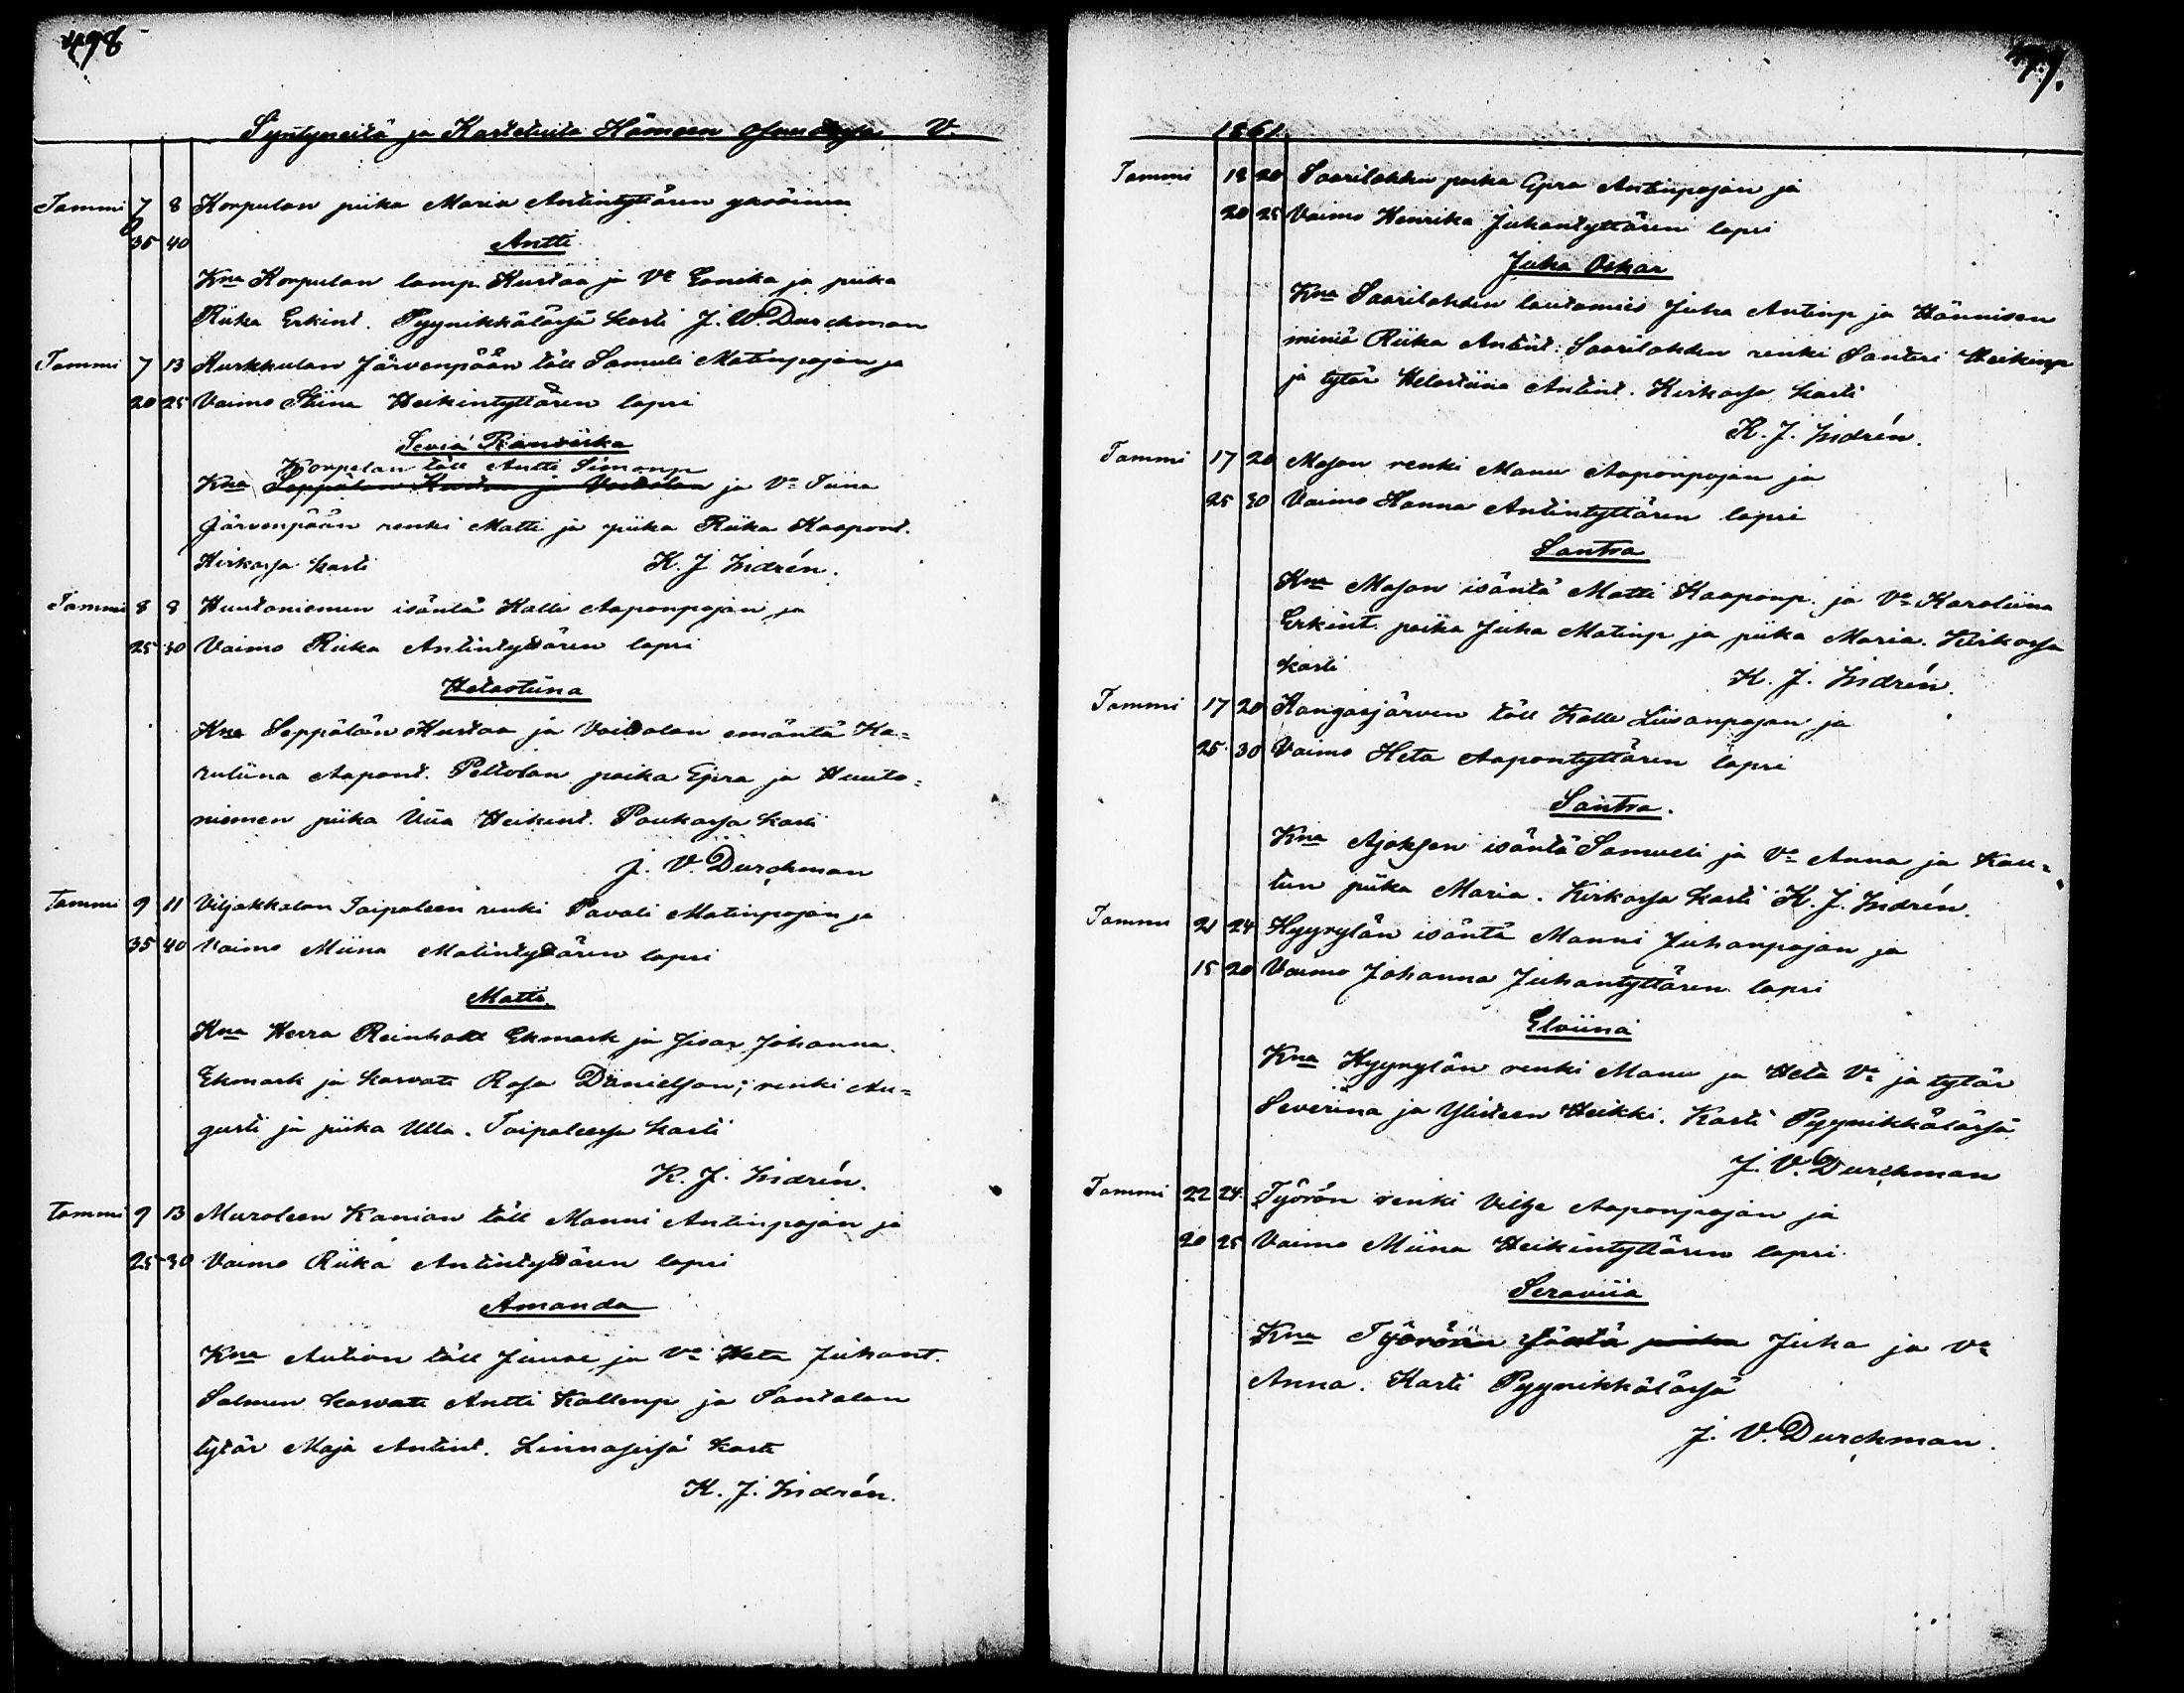 498
Syntyneitä ja Kastetuita Hämeen osuudessa V.
Tammi 7 8 Korpulan piika Maria Antintyttären yksöinen
35 40 Antti
Kna Korpulan lamp. Kustaa ja Vo Eenika ja piika
Riika Erkint. Pyynikkälässä kasti J. W. Durchman
Tammi 7 13 Kurkkulan Järvenpään töll Samuli Matinpojan ja
20 25 Vaimo Stiina Heikintyttären lapsi
Seviä Ranviika
Korpelan töll Antti Simonp
Kna Seppälan Kustaa ja Voidolan ja Vo Tiina
Järvenpään renki Matti ja piika Riika Kaapont.
Kirkossa kasti K. J. Lindrén.
Tammi 8 8 Huutoniemen isäntä Kalle Aaponpojan ja
25 30 Vaimo Riika Antintyttären lapsi
Hetastiina
Kna Seppälän Kustaa ja Voidolan emäntä Ka=
ruliina Aapont. Peltolan poika Epra ja Huuto=
niemen piika Uiia Heikint. Poukassa kasti
J. V. Durchman
Tammi 9 11 Viljakkalan Taipaleen renki Pavali Matinpojan ja
35 40 Vaimo Miina Matintyttären lapsi
Matti
Kna Herra Reinholt Ekmark ja sisar Johanna
Ekmark ja kasvatti Rosa Danielson; renki Au=
gusti ja piika Ulla. Taipaleessa kasti
K. J. Lindrén.
Tammi 9 13 Muroleen Kanian töll Manni Antinpojan ja
25 30 Vaimo Riika Antintyttären lapsi
Amanda
Kna Aution töll Juuse ja Vo Heta Juhant.
Salmen kasvatti Antti Kallenp ja Santalan
tytär Maja Antint. Linnasissa kasti
K. J. Lindrén.
1861.
Tammi 18 20 Saarilahden poika Epra Antinpojan ja
20 25 Vaimo Henrika Juhantyttären lapsi
Juha Oskar
Kna Saarilahden lautamies Juha Antinp ja Hännisen
miniä Riika Antint. Saarilahden renki Santeri Heikinp
ja tytär Hetastiina Antint. Kirkossa kasti
K. J. Lindrén.
Tammi 17 20 Mason renki Manu Aaponpojan ja
25 30 Vaimo Hanna Antintyttären lapsi
Santra
Kna Mason isäntä Matti Kaaponp. ja Vo Karoliina
Erkint. poika Juha Matinp ja piika Maria. Kirkossa
kasti K. J. Lindrén.
Tammi 17 20 Kangasjärven töll Kalle Liisanpojan ja
25 30 Vaimo Heta Aapontyttären lapsi
Santra.
Kna Ajoksen isäntä Samueli ja Vo Anna ja Kau=
tun piika Maria. Kirkossa kasti K. J. Lindrén.
Tammi 21 24 Hyyrylän isäntä Manni Juhanpojan ja
15 20 Vaimo Johanna Juhantyttären lapsi
Elviina
Kna Hyyrylän renki Manu ja Heta Vo ja tytär
Severina ja Ylisteen Heikki. Kasti Pyynikkälässä
J. V. Durchman
Tammi 22 24 Työrön renki Viltja Aaponpojan ja
20 25 Vaimo Miina Heikintyttären lapsi.
Seraviia
Kna Työrön isäntä poika Juha ja Vo
Anna. Kasti Pyynikkälässä
J. V. Durchman.